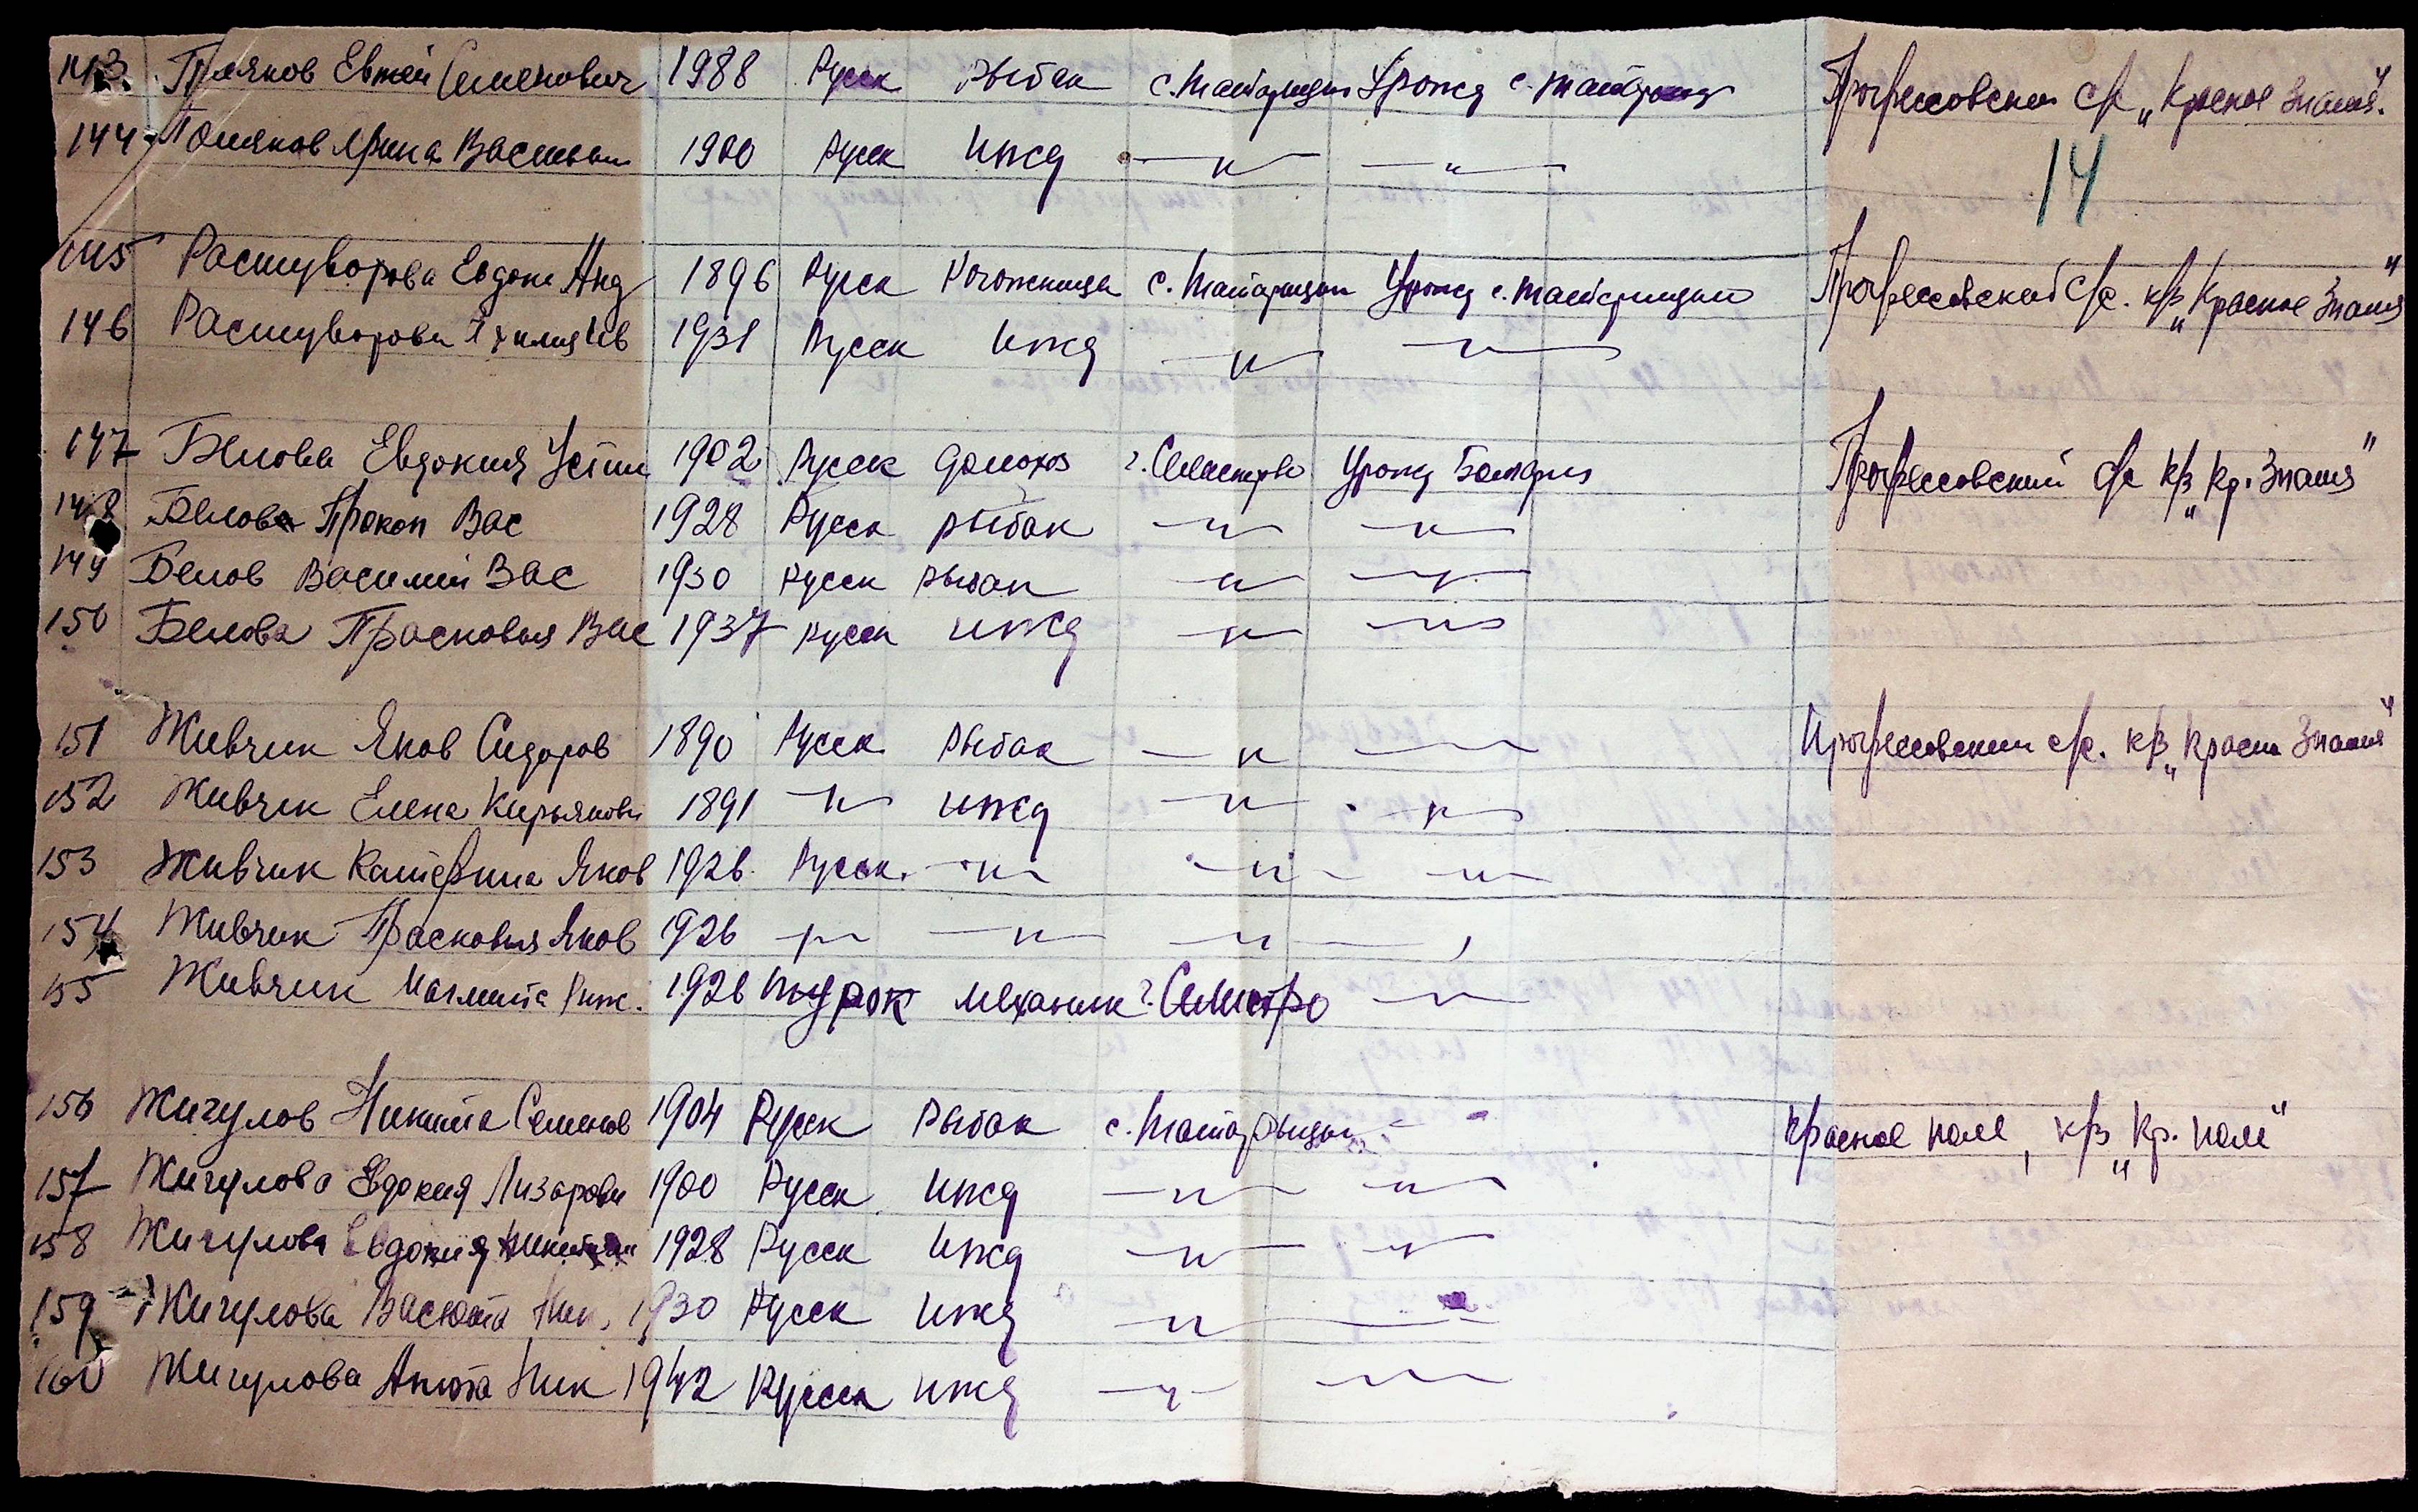 143. Поляков Евтей Семенович 1988 Русск Рыбак с. Татарицы Урожд с. Татарицы Прогрессовский с/с „Красное Знамя".
144 Поляков Ирина Васильев 1900 Русск Ижд —"— —"—
14
145 Растуворова Евдоки Анд 1896 Русск Рогожница с. Татарицы Урожд с. Татарицы Прогрессовский с/с. к/з „Красное Знамя"
146 Растуворова 1931 Русск Ижд —"— —"—
147 Белова Евдокия Устин 1902 Русск домохоз г. Силистро Урожд Болгария Прогрессовский с/с к/з „Кр. Знамя"
148 Белова Прокоп Вас 1928 Русск рыбак —"— —"—
149 Белов Василий Вас 1930 Русск рыбак —"— —"—
150 Белова Прасковья Вас 1937 Русск ижд —"— —"—
151 Живчик Яков Сидоров 1890 Русск Рыбак —"— —"— Прогрессовский с/с. к/з „Красн Знамя"
152 Живчик Елена Кирьянови 1891 —"— ижд —"— —"—
153 Живчик Катерина Яков 1926. Русск. —"— —"— —"—
154 Живчик Прасковья Яков 1926 —"— —"— —"—
155 Живчик 1926 турок механик г. Силистро —"—
156 Жигулов Никита Семенов 1904 Русск Рыбак с. Татарицы Красное поле, к/з „Кр. поле"
157 Жигулова Евдокия Лизарови 1900 Русск. Ижд —"— —"—
158 Жигулова Евдокия Никитич 1928 Русск Ижд —"— —"—
159 Жигулова Васюта Ник. 1930 Русск Ижд —"—
160 Жигулова Анюта Ник 1942 Русск ижд —"— —"—